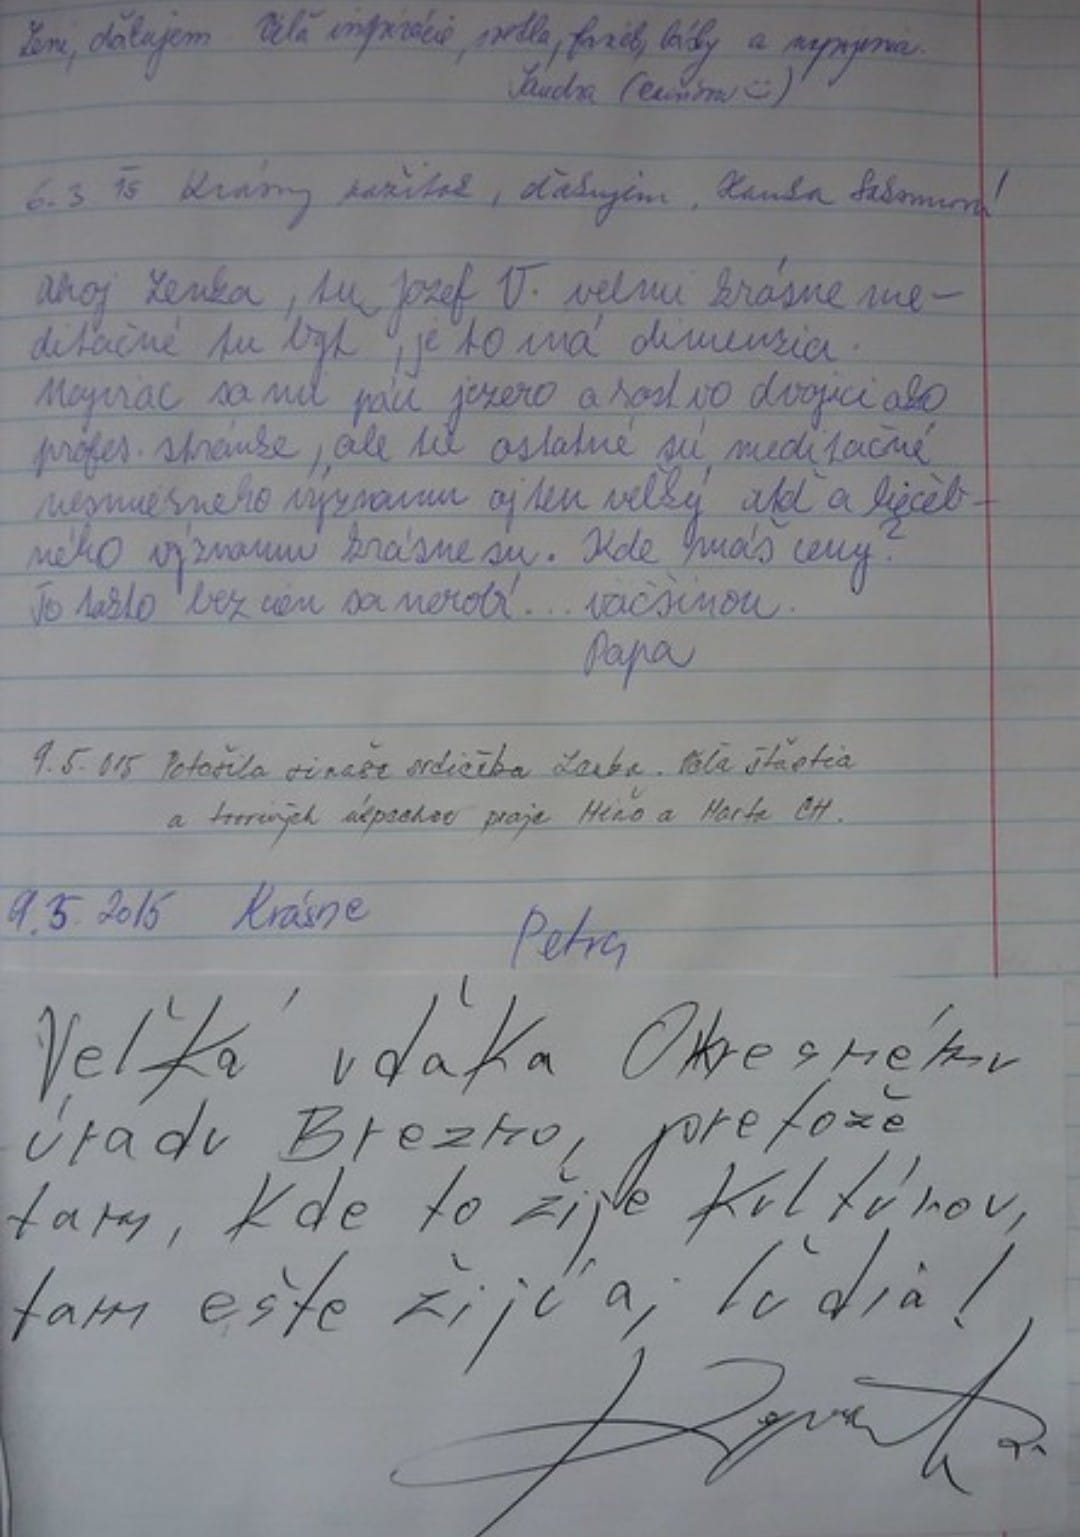 Leni, ďakujem. Veľa inšpirácie, svetla, farieb, lásky a
Sandra
6.3 15 Krásny zážitok, ďakujem, Hanka
Ahoj Lenka, tu Jozef V. velmi krásne me-
ditačné tu byť, je to iná dimenzia.
Najviac sa mi páči jezero a rast vo dvojici ako
profes. stránke, ale tie ostatné sú meditačné
nesmierneho významu aj ten velký atď a liečeb-
ného významu krásne sú. Kde máš ceny?
To takto bez cien sa nerobí... väčšinou.
Papa
9.5.015 Potešila si naše srdiečka Lenka. Veľa šťastia
a tvorivých úspechov praje Miňo a Marta CH.
9.5.2015 Krásne
Petra
Veľká vďaka Okresnému
úradu Brezno, pretože
tam, kde to žije kultúrou,
tam ešte žijú aj ľudia!